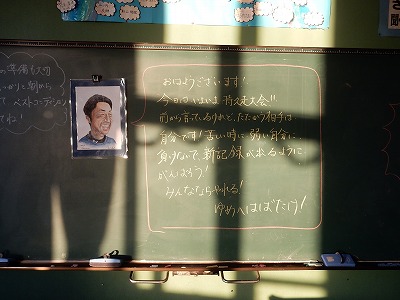 の準備も大切
ベストコンディション
てね!
おはようございます!
今日はいよいよ持久走大会!!
前から言っているけれど、たたかう相手は
自分です!苦しい時に弱い自分に
負けないで、新記録が出るように
がんばろう!
みんなならやれる!
ゆめへはばたけ!